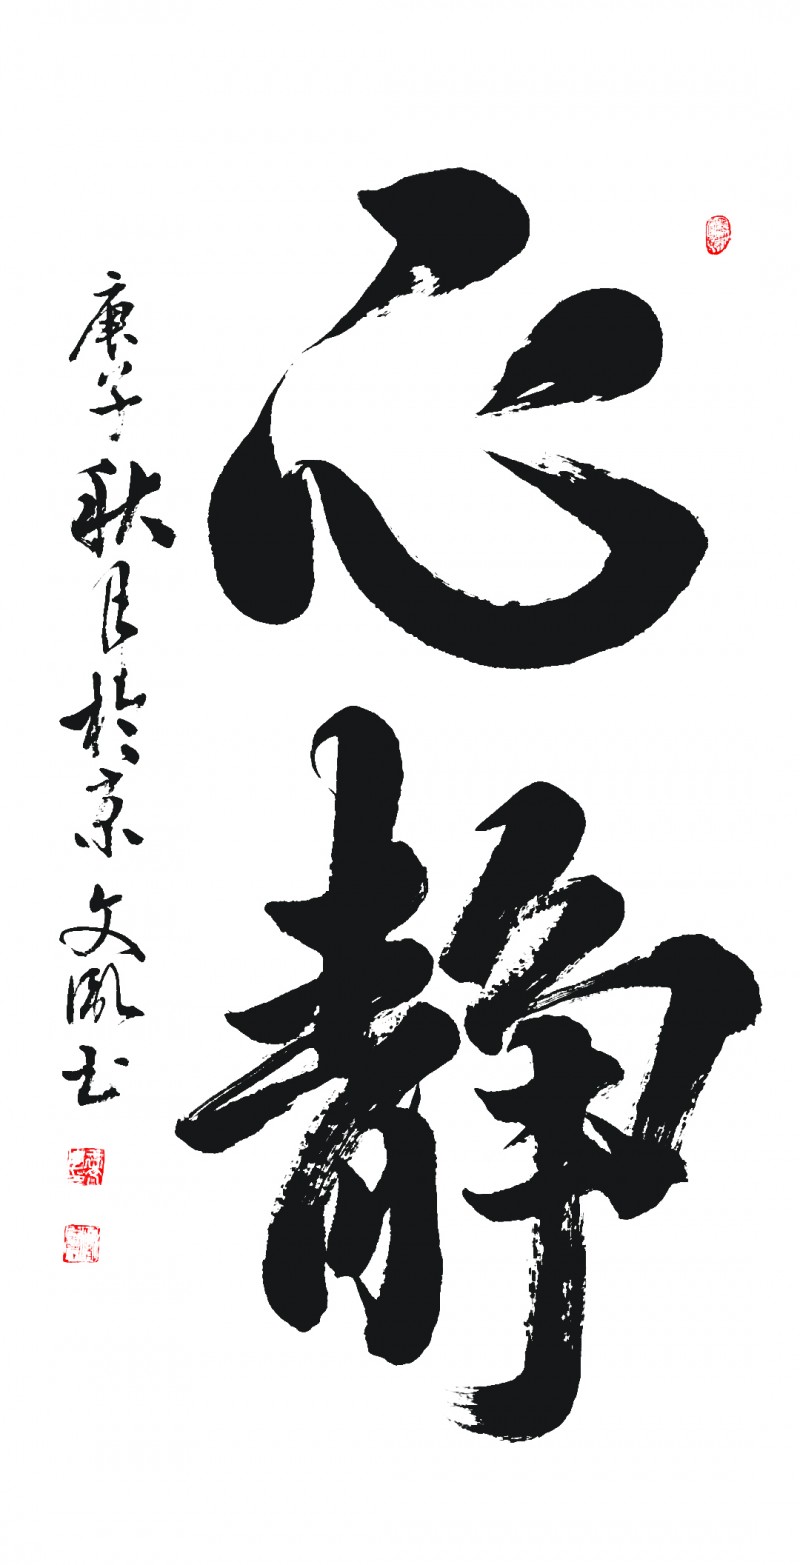 心静
庚子秋月於京文胤书